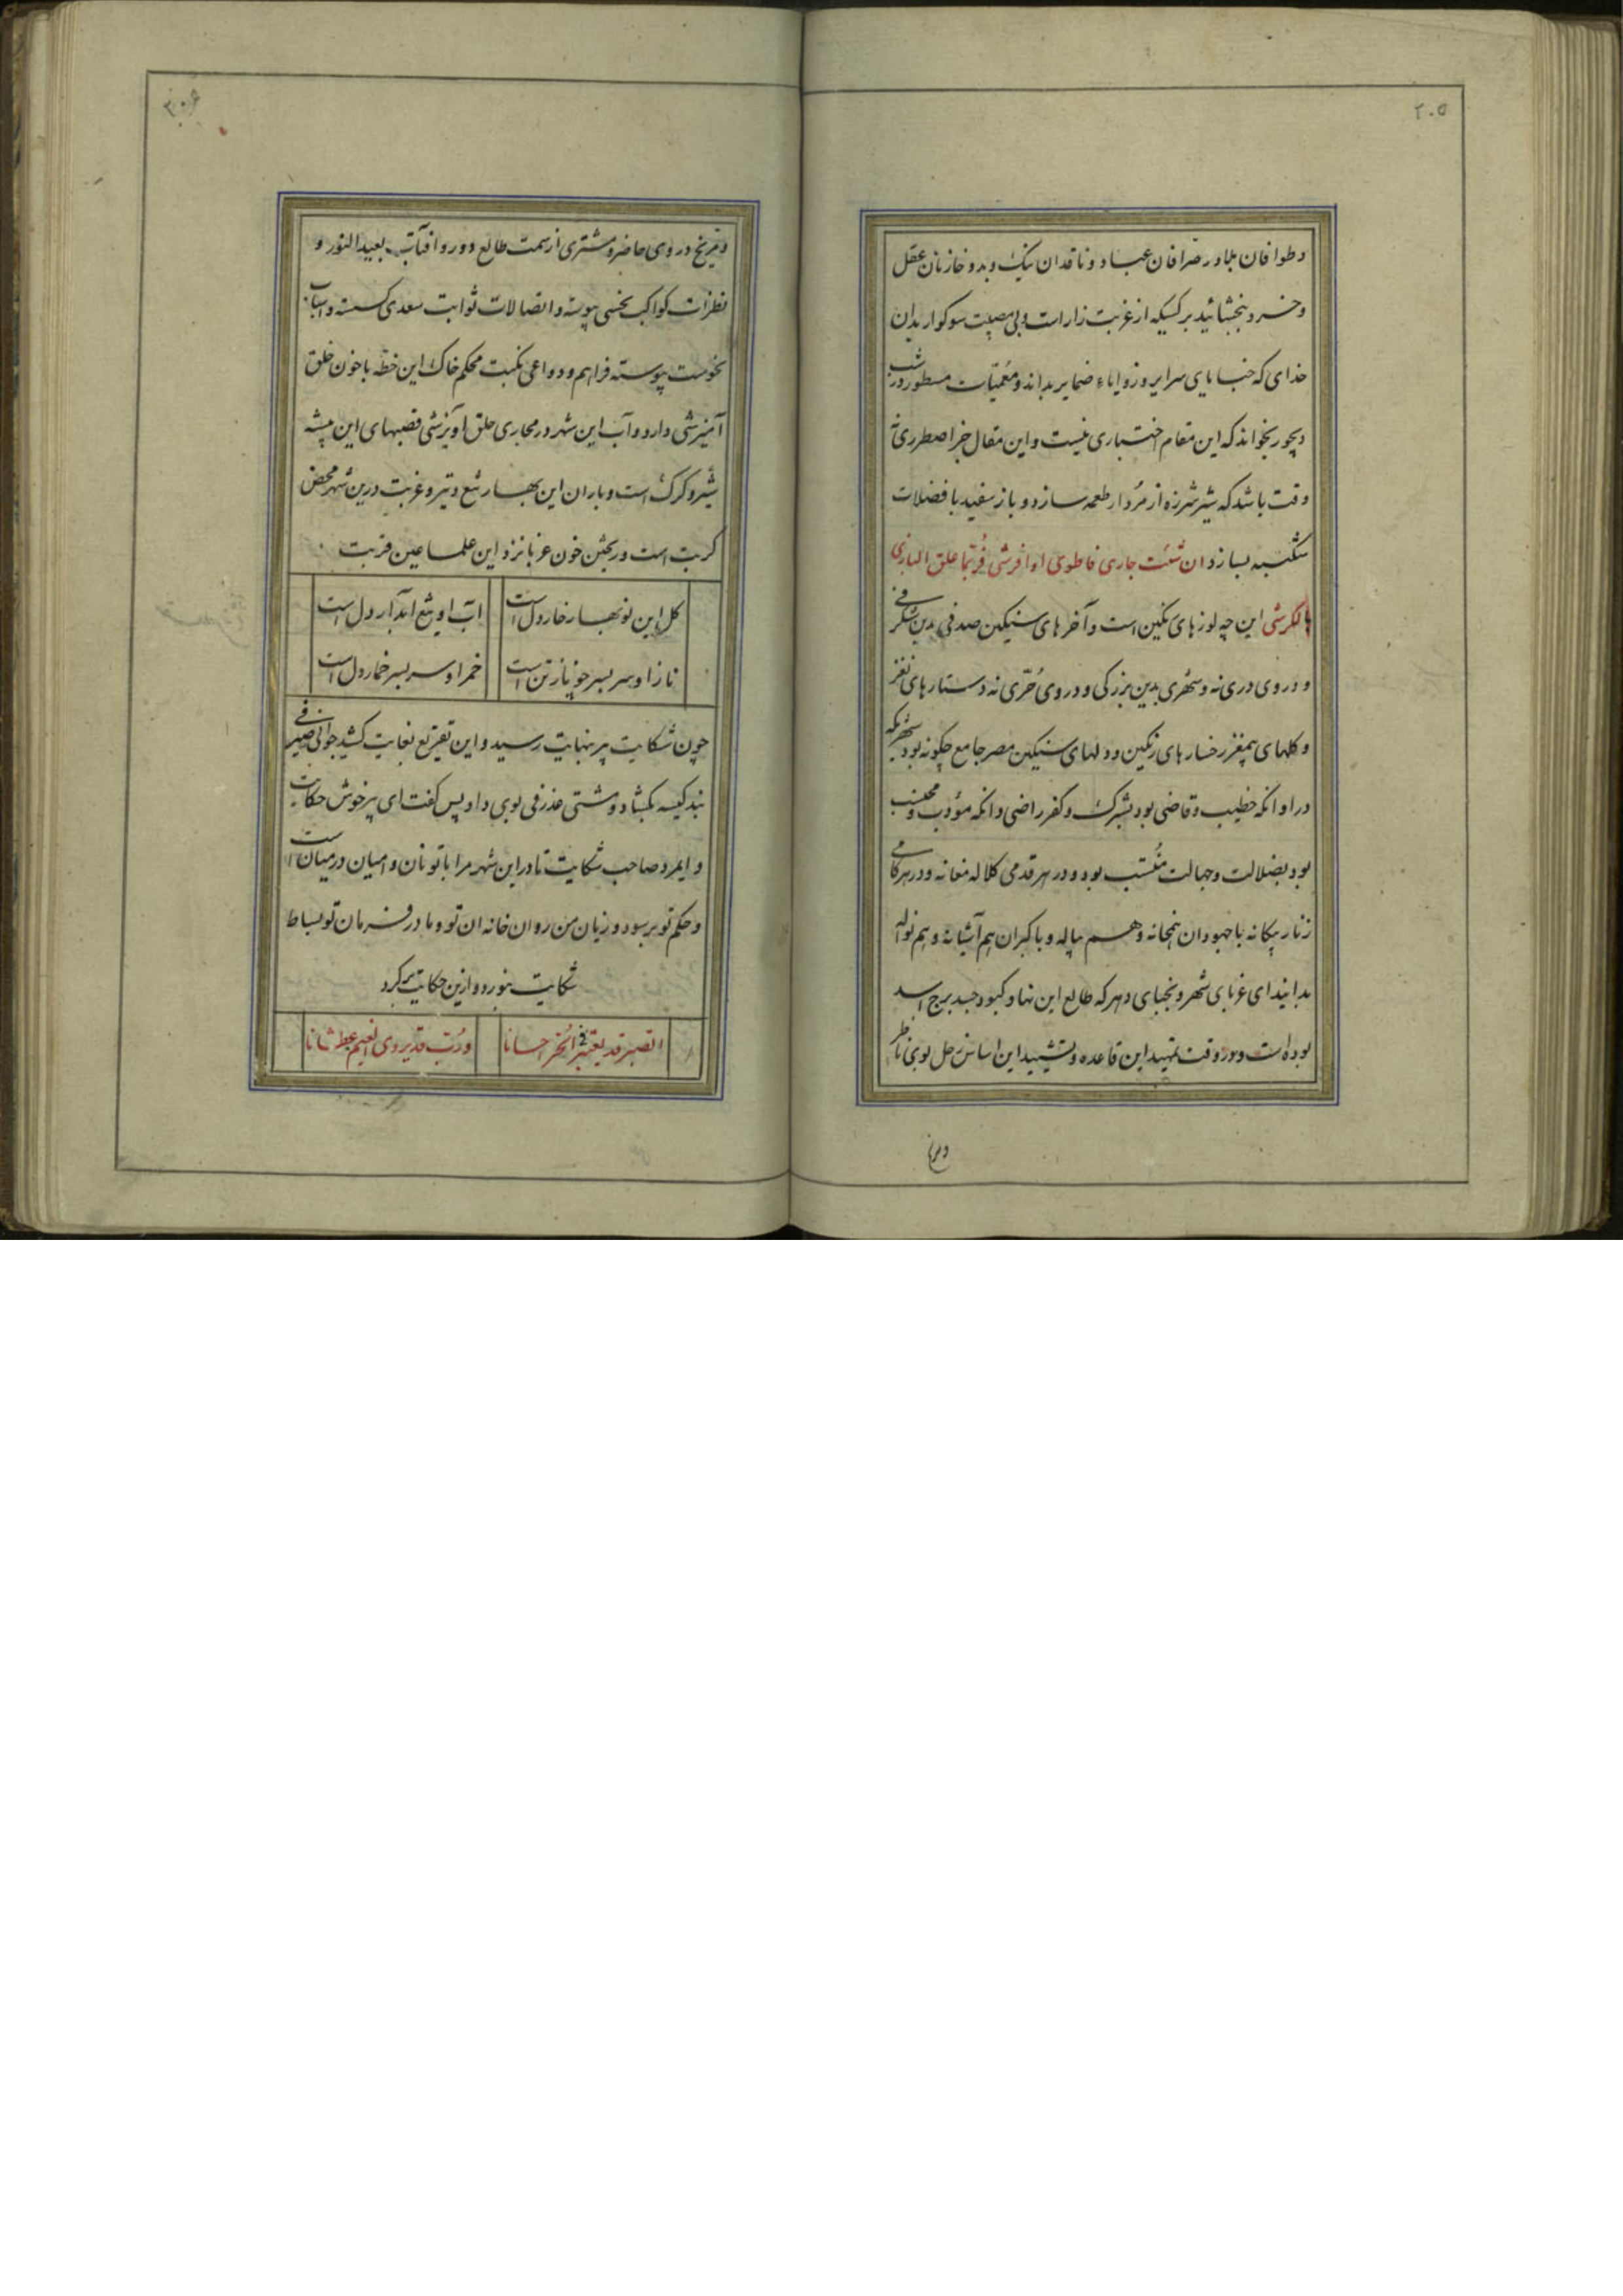 ۲۰۵
و طوافان بلاد و صرافان عباد و ناقدان نیک و بد و خازنان عقل
و خرد ببخشائید بر کسیکه از غربت زار است و بی مصیبت سوکوار بدان
خدای که خبایای سرایر و زوایاء ضمایر بداند و معمیّات مسطور در شب
دیجور بخواند که این مقام اختیاری نیست و این مقال جز اضطرری نه
وقت باشد که شیر شرزه از مُردار طعمه سازد و باز سفید با فضلات
شکنبه بسازد ان شئت جاری فاطوی او افرشی فُربّما علق البازی
بالکرشی این چه لوزهای نکین است و آخرهای سنکین صدفی بدین شکرفی
و در وی دری نه و شهری بدین بزرکی و در وی حُرّی نه دستارهای نغز
و کلهای بیمغز رخسارهای رنکین و دلهای سنکین مصر جامع چکونه بود شهریکه
در او انکه خطیب و قاضی بود بشرک و کفر راضی و انکه مؤدب و محتسب
بود بضلالت و جهالت منُتسب بود و در هر قدمی کلاله مغانه و در هر کامی
زنار بیکانه با جهودان همخانه و هم پیاله و با کبران هم آشیانه و هم نواله
بدانید ای غربای شهر و نجبای دهر که طالع این نهاد کبود جسد برج اسد
بوده است و در وقت تمهید این قاعده و تشیید این اساس زحل بوی ناظر
و مریخ
و مریخ در وی حاضر و مشتری از سمت طالع دور و افتآب بعید النور و
نظرات کواکب نحسی پیوسته و اتصالات ثوابت سعدی کسسته و اسباب
نحوست پیوسته فراهم و دواعی نکبت محکم خاک این خطه با خون خلق
آمیزشی دارد و آب این شهر در مجاری حلق آویزشی قصبهای این بیشه
شیر و کرک است و باران این بهار تیغ و تیر و غربت درین شهر محض
کربت است و ریختن خون غربا نزد این علما عین قربت
کل این نوبهار خار دل است
آب او تیغ آبدار دل است
ناز او سر بسر جو ناز تن است
خمر او سر بسر خمار دل است
چون شکایت پیر بنهایت رسید و این تقریع بغایت کشید جوانی صیرفی
بند کیسه بکشاد و مشتی بوی داد پس کفت ای پیر خوش حکایت
و ایمرد صاحب شکایت تا در این شهر مرا با تو نان و انبان در میان است
و حکم تو بر سود و زیان من روان خانه ان تو و ما در فرمان تو بساط
شکایت بنورد و ازین حکایت برکرد